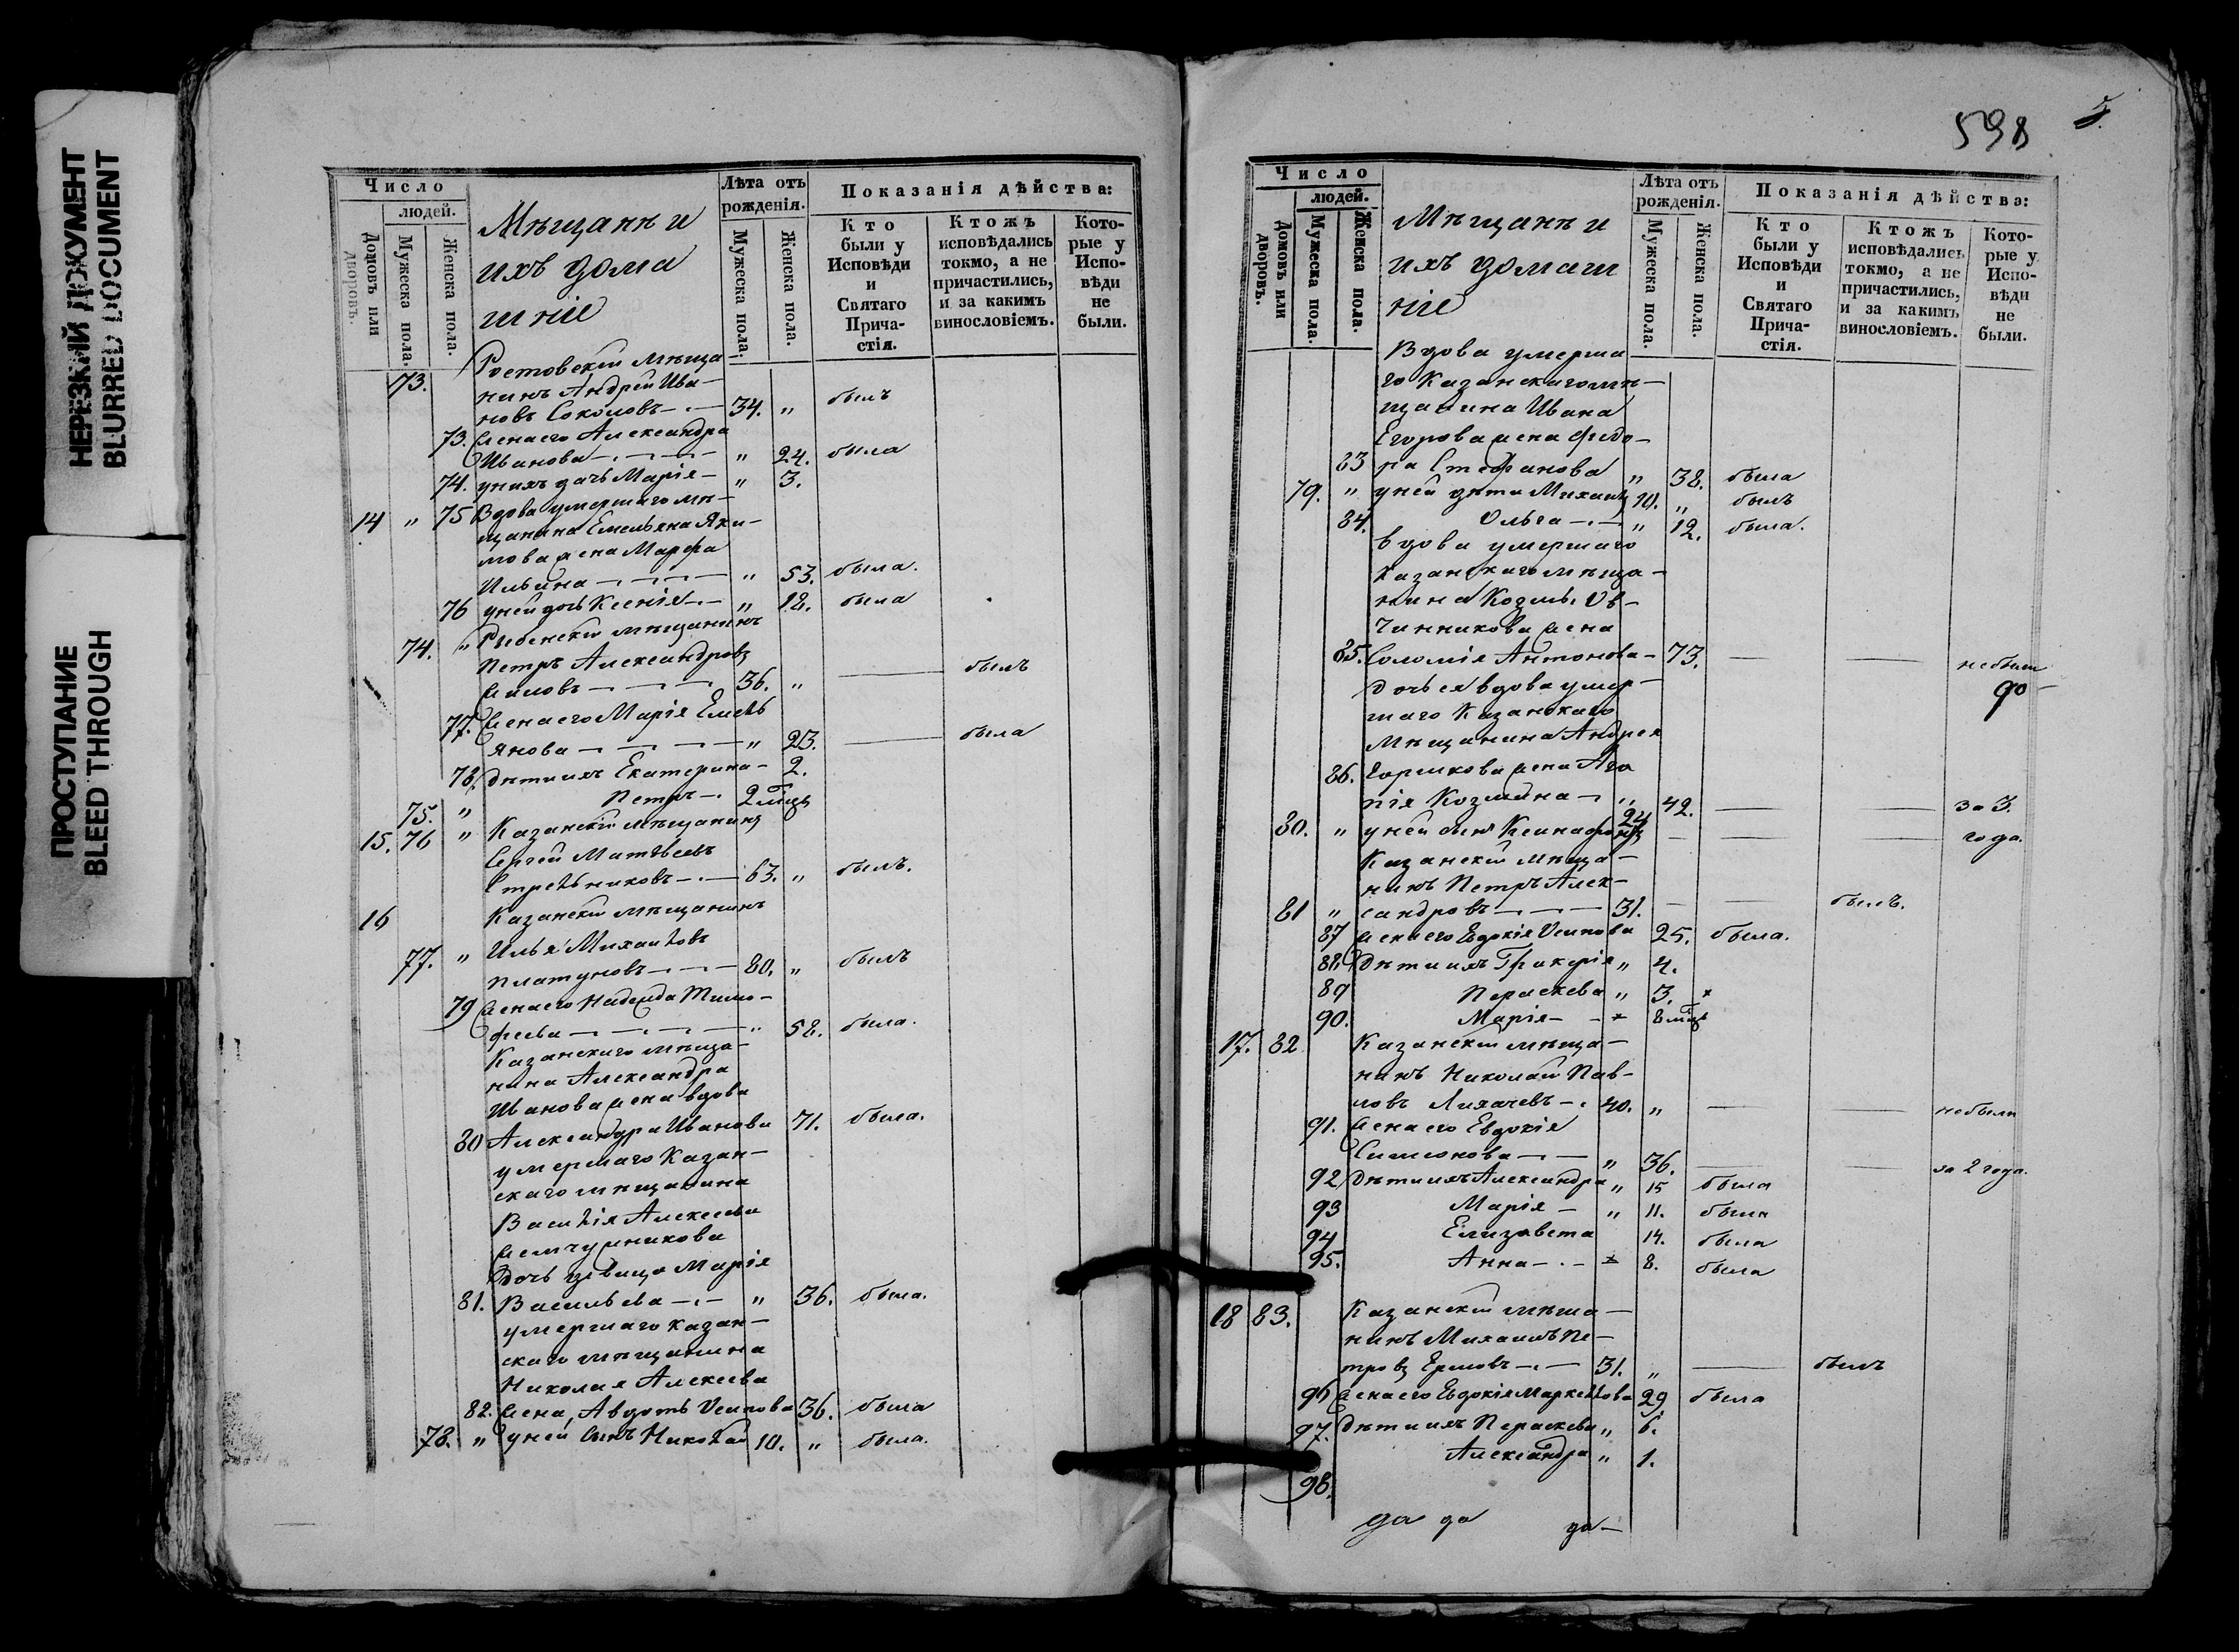 НЕРЕЗКИЙ ДОКУМЕНТ
BLURRED DOCUMENT
ПРОСТУПАНИЕ
BLEED THROUGH
Число
людей.
Домовъ или дворовъ.
Мужеска пола.
Женска пола.
Мѣщане и
ихъ дома
шніе
Лѣта отъ рожденія.
Мужеска пола.
Женска пола.
Показанія дѣйства:
Кто были у Исповѣди и Святаго Прича-стія.
Ктожъ исповѣдались токмо, а не причастились, и за какимъ винословіемъ.
Кото-рые у Испо-вѣди не были.
Ростовскій мѣща
73. нинъ Андрей Ива-
новъ Соколовъ 34. " былъ
73. Жена его Александра
Иванова " 24. была
74. у нихъ дочь Марія " 3.
14 " 75 Вдова умершаго мѣ-
щанина Емельяна Яки-
мова жена Марфа
Ильина " 53. была.
76 у ней дочь Ксенія " 18. была
74. " Рыбенскій мѣщанинъ
Петръ Александровъ
36. " былъ
77. Жена его Марія Емель
янова " 23. была
78. Дѣти ихъ Екатерина 2.
75. " Петръ 2 мѣц
15. 76 " Казанскій мѣщанинъ
Сергей Матвѣевъ
Стрельниковъ 63. " былъ.
16 Казанскій мѣщанинъ
77. " Илья Михайловъ
Платуновъ 80. " былъ
79 Жена его Надежда Тимо-
феева " 58. была.
Казанскаго мѣща-
нина Александра
Иванова жена вдова
80 Александра Иванова 71. была.
умершаго Казан-
скаго мѣщанина
Василія Алексеева
Жемчужникова
дочь девица Марія
81. Васильева " 36. была.
умершаго казан-
скаго мѣщанина
Николая Алексеева
82. Жена, Авдотья Осипова 36. была
78. " у ней сынъ Николай 10. " была.
598 5.
Число
людей.
Домовъ или дворовъ.
Мужеска пола.
Женска пола.
Мѣщане и
ихъ домаш
ніе
Лѣта отъ рожденія.
Мужеска пола.
Женска пола.
Показанія дѣйства:
Кто были у Исповѣди и Святаго Прича-стія.
Ктожъ исповѣдались токмо, а не причастились, и за какимъ винословіемъ.
Кото-рые у Испо-вѣди не были.
Вдова умерша
го Казанскаго мѣ-
щанина Ивана
Егорова жена Федо-
83 ра Стефанова " 38. была
79. " у ней дѣти Михаилъ 10. " былъ
84. Ольга " 12. была.
вдова умершаго
Казанскаго мѣща-
нина Козмы Ов-
чинникова жена
85. Соломія Антонова 73. не были
дочь ея вдова умер-
шаго Казанскаго
мѣщанина Андрея
86. Горшкова жена Ага
пія Козмина " 42. за 3.
80. " у ней сынъ Ксенофонтъ 24 года.
Казанскій мѣща-
нинъ Петръ Алек-
81 " сандровъ 31. былъ.
87 Жена его Евдокія Осипова 25. была.
88. Дѣти ихъ Гликерія " 4.
89 Параскева " 3.
90. Марія 8 мѣц
17. 82 Казанскій мѣща-
нинъ Николай Пав-
ловъ Лихачевъ 40. " не были
91. Жена его Евдокія
Симионова " 36. за 2 года.
92 Дѣти ихъ Александра " 15 была
93 Марія " 11. была
94 Елизавета 14. была
95. Анна 8. была
18 83. Казанскій мѣща-
нинъ Михаилъ Пе-
тровъ 31. " былъ
96 Жена его Евдокія Маркеллова 29 была
97. Дѣти ихъ Параскева " 6.
Александра " 1.
98.
да да да